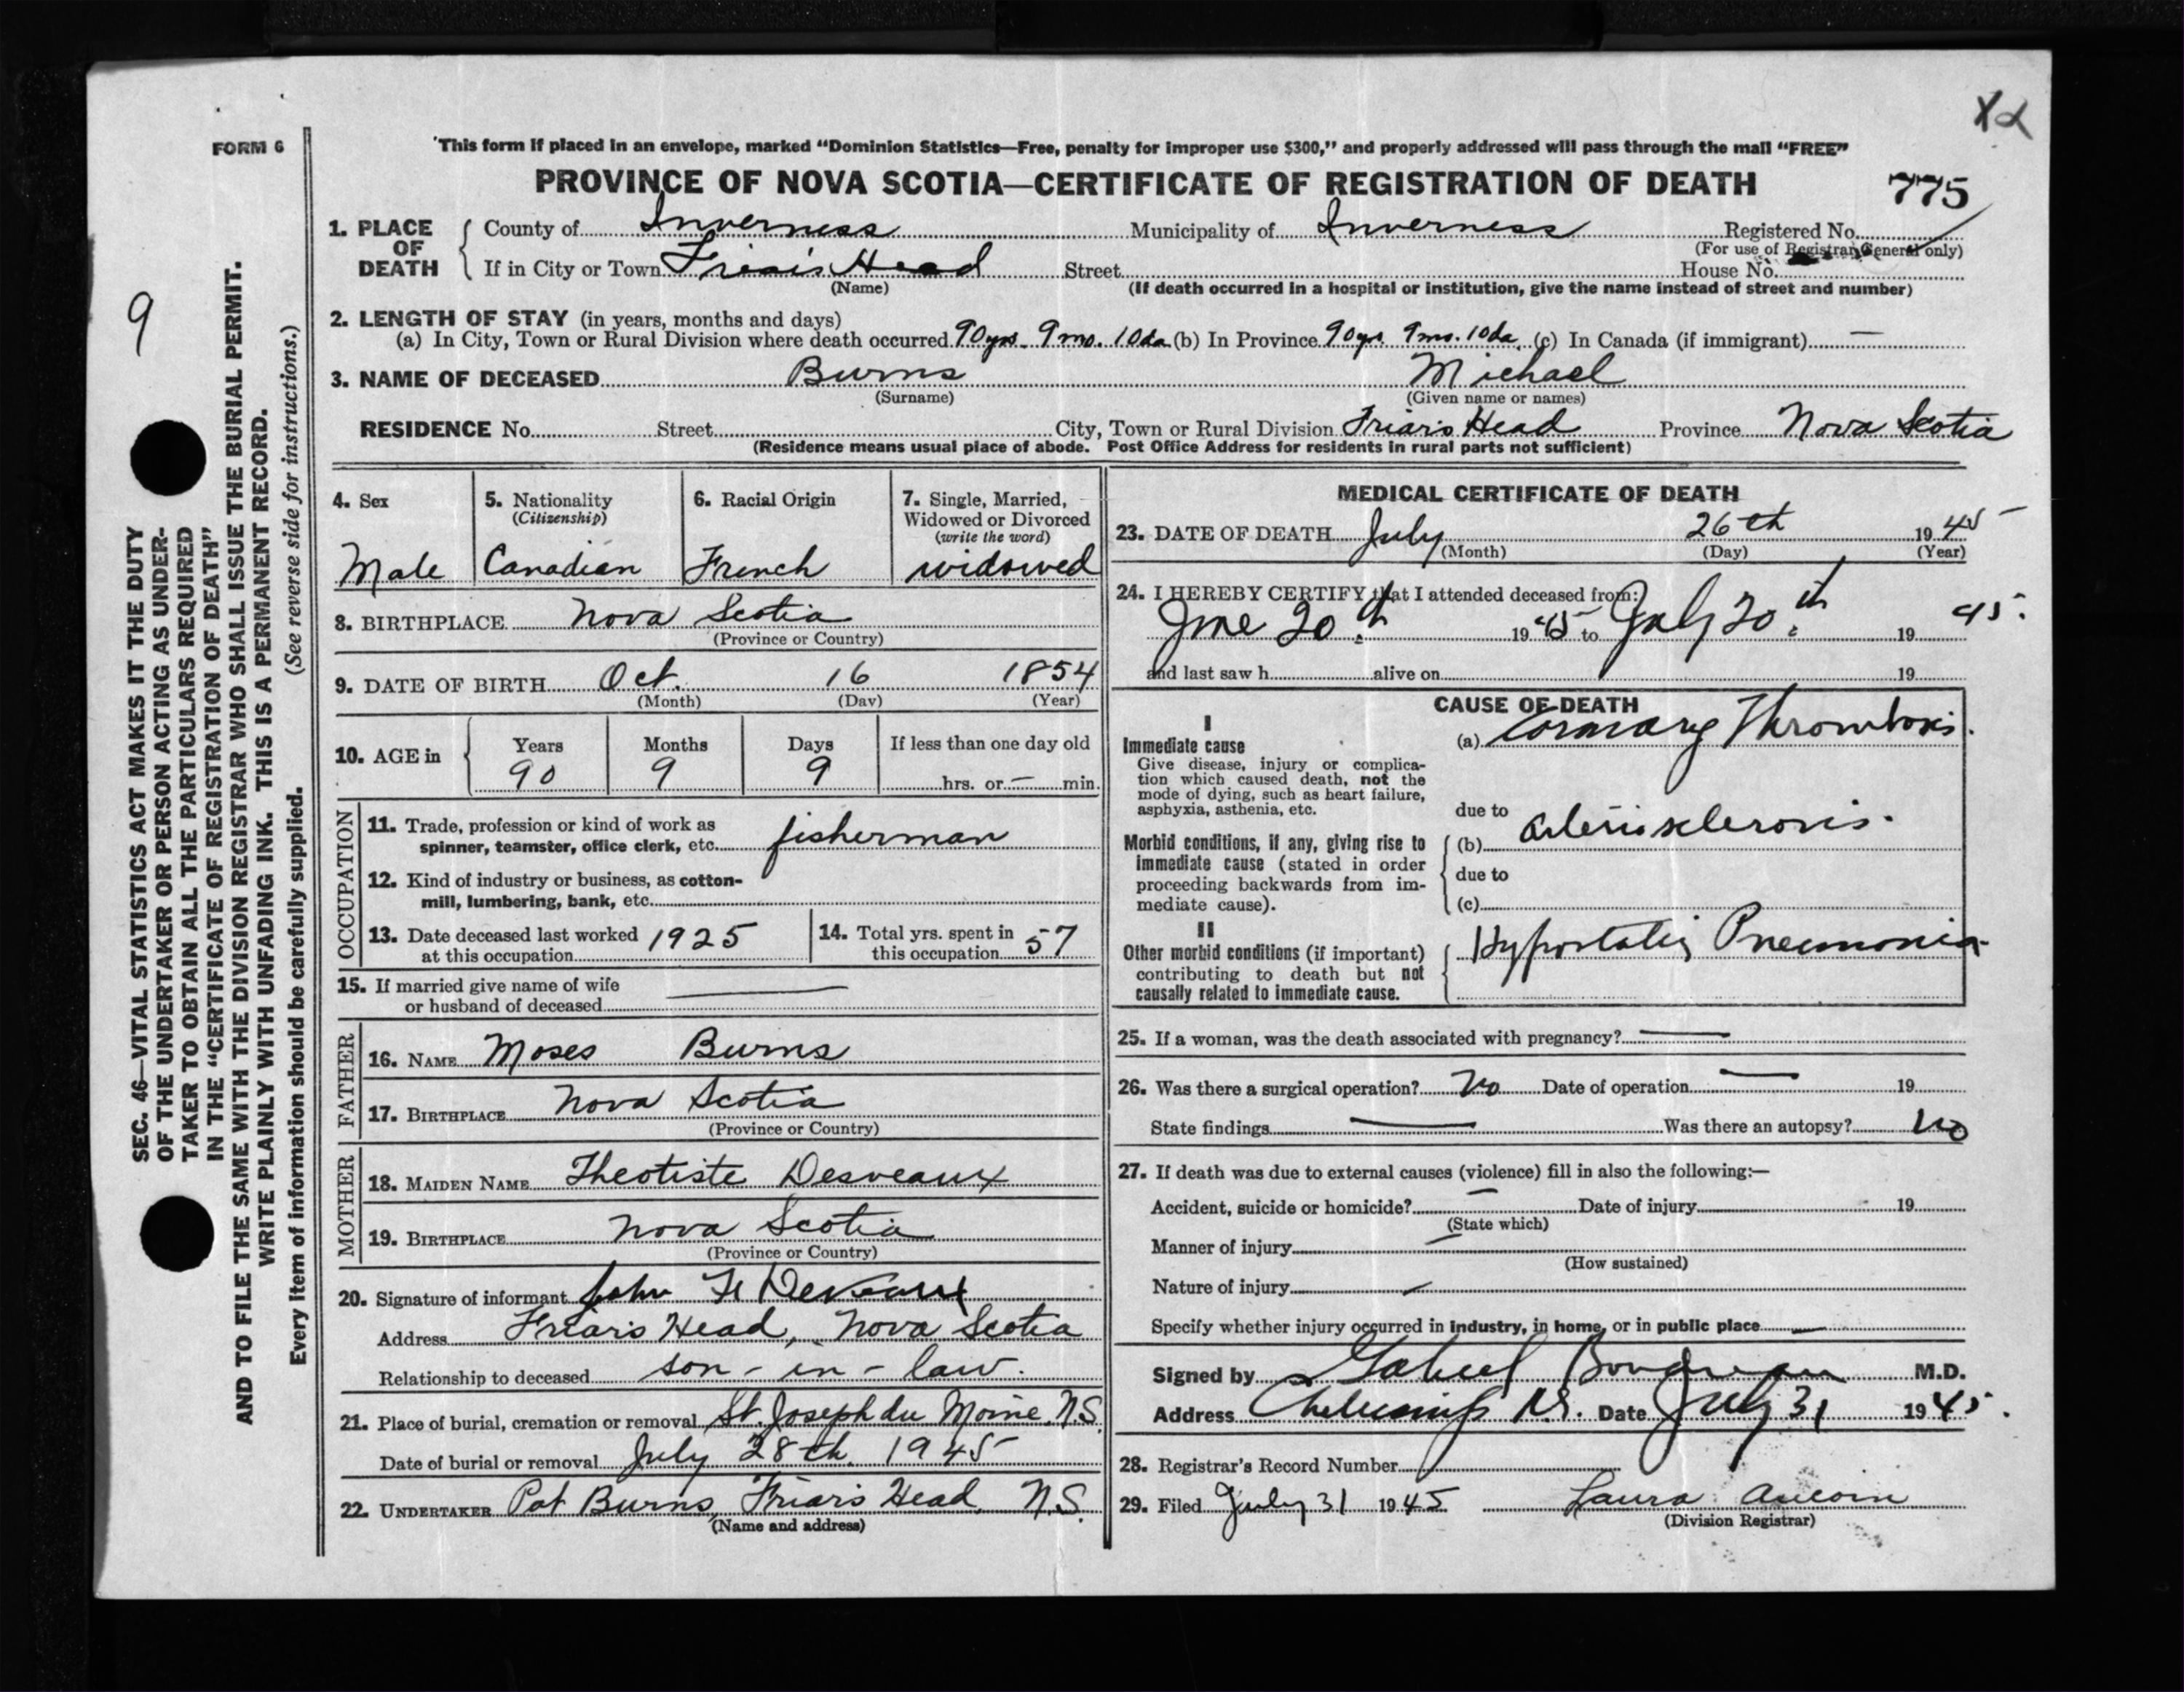 X2
FORM 6
This form if placed in an envelope, marked "Dominion Statistics—Free, penalty for improper use $300," and properly addressed will pass through the mail "FREE"
PROVINCE OF NOVA SCOTIA—CERTIFICATE OF REGISTRATION OF DEATH
775
1. PLACE OF DEATH
County of Inverness Municipality of Inverness Registered No.
(For use of Registrar General only)
If in City or Town Friar's Head Street House No.
(Name) (If death occurred in a hospital or institution, give the name instead of street and number)
2. LENGTH OF STAY (in years, months and days)
(a) In City, Town or Rural Division where death occurred 90 yrs. 9 mo. 10 da (b) In Province 90 yr. 9 mo. 10 da. (c) In Canada (if immigrant) —
3. NAME OF DECEASED Burns Michael
(Surname) (Given name or names)
RESIDENCE No. Street City, Town or Rural Division Friar's Head Province Nova Scotia
(Residence means usual place of abode. Post Office Address for residents in rural parts not sufficient)
4. Sex
Male
5. Nationality
(Citizenship)
Canadian
6. Racial Origin
French
7. Single, Married,
Widowed or Divorced
(write the word)
widowed
8. BIRTHPLACE Nova Scotia
(Province or Country)
9. DATE OF BIRTH Oct. 16 1854
(Month) (Day) (Year)
10. AGE in
Years Months Days If less than one day old
90 9 9 hrs. or — min.
OCCUPATION
11. Trade, profession or kind of work as
spinner, teamster, office clerk, etc. fisherman
12. Kind of industry or business, as cotton-
mill, lumbering, bank, etc.
13. Date deceased last worked
at this occupation 1925
14. Total yrs. spent in
this occupation 57
15. If married give name of wife
or husband of deceased —
FATHER
16. NAME Moses Burns
17. BIRTHPLACE Nova Scotia
(Province or Country)
MOTHER
18. MAIDEN NAME Theotiste Desveaux
19. BIRTHPLACE Nova Scotia
(Province or Country)
20. Signature of informant John Deveaux
Address Friar's Head, Nova Scotia
Relationship to deceased son-in-law.
21. Place of burial, cremation or removal St. Joseph du Moine N.S.
Date of burial or removal July 28th. 1945
22. UNDERTAKER Pat Burns, Friar's Head, N.S.
(Name and address)
MEDICAL CERTIFICATE OF DEATH
23. DATE OF DEATH July 26th 1945
(Month) (Day) (Year)
24. I HEREBY CERTIFY that I attended deceased from:
June 20th 1945 to July 20th 1945.
and last saw h alive on 19
CAUSE OF DEATH
I
Immediate cause
Give disease, injury or complica-
tion which caused death, not the
mode of dying, such as heart failure,
asphyxia, asthenia, etc.
(a) Coronary Thrombosis.
due to
Morbid conditions, if any, giving rise to
immediate cause (stated in order
proceeding backwards from im-
mediate cause).
(b) Arteriosclerosis.
due to
(c)
II
Other morbid conditions (if important)
contributing to death but not
causally related to immediate cause.
Hypostatic Pneumonia
25. If a woman, was the death associated with pregnancy? —
26. Was there a surgical operation? No Date of operation — 19
State findings — Was there an autopsy? No
27. If death was due to external causes (violence) fill in also the following:—
Accident, suicide or homicide? — Date of injury 19
(State which)
Manner of injury —
(How sustained)
Nature of injury —
Specify whether injury occurred in industry, in home, or in public place —
Signed by Gabriel Boudreau M.D.
Address Cheticamp N.S. Date July 31 1945.
28. Registrar's Record Number
29. Filed July 31 1945 Laura Aucoin
(Division Registrar)
9
SEC. 46—VITAL STATISTICS ACT MAKES IT THE DUTY
OF THE UNDERTAKER OR PERSON ACTING AS UNDER-
TAKER TO OBTAIN ALL THE PARTICULARS REQUIRED
IN THE "CERTIFICATE OF REGISTRATION OF DEATH"
AND TO FILE THE SAME WITH THE DIVISION REGISTRAR WHO SHALL ISSUE THE BURIAL PERMIT.
WRITE PLAINLY WITH UNFADING INK. THIS IS A PERMANENT RECORD.
Every item of information should be carefully supplied. (See reverse side for instructions.)